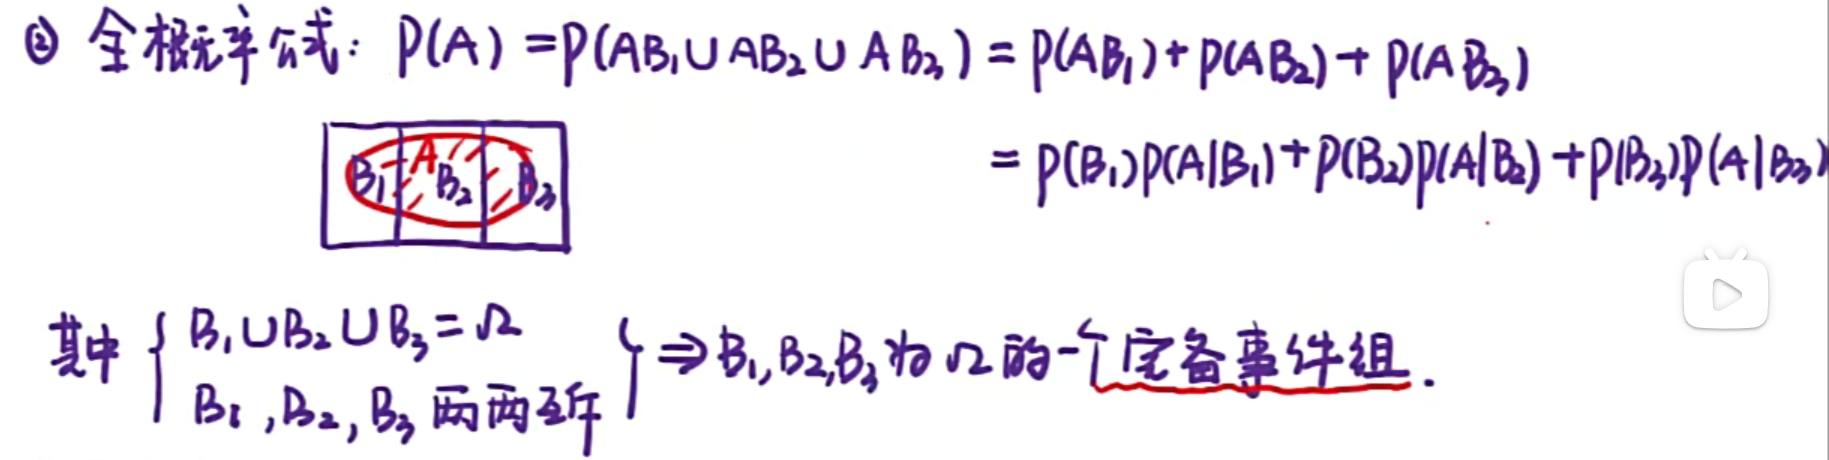 ② 全概率公式: P(A) = P(AB₁∪AB₂∪AB₃) = P(AB₁)+P(AB₂)+P(AB₃)
= P(B₁)P(A|B₁)+P(B₂)P(A|B₂)+P(B₃)P(A|B₃)
A
B₁ B₂ B₃
其中 { B₁∪B₂∪B₃=Ω
B₁,B₂,B₃两两互斥 } ⇒ B₁,B₂,B₃为Ω的一个完备事件组.